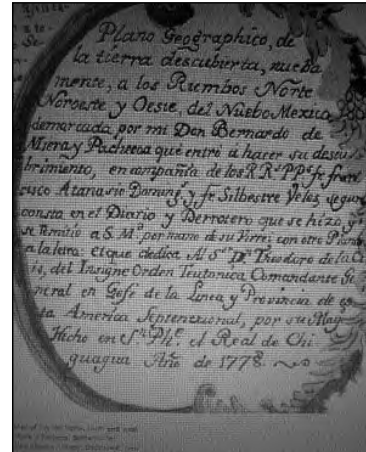 Plano Geographico, de
la tierra descubierta, nueba
mente, a los Rumbos Norte
Noroeste y Oeste, del Nuebo Mexico
demarcada por mi Don Bernardo de
Miera y Pacheco que entró a hacer su descu
brimiento, en compañia de los RR.s PP.s fr. fran
cisco Atanasio Doming.z y fr. Silbestre Veles, segun
consta en el Diario y Derrotero que se hizo y
se remitio a S. M.d por mano de su Virrei con otro Plano
a la letra: el que dedica Al S.r D.n Theodoro de la Cr
is, del Insigne Orden Teutonica Comandante Ge
neral en Gefe de la Linea y Provincia de es
ta America Septentrional, por su Mag.
Hecho en S.n Ph.e el Real de Chi
guagua Año de 1778.